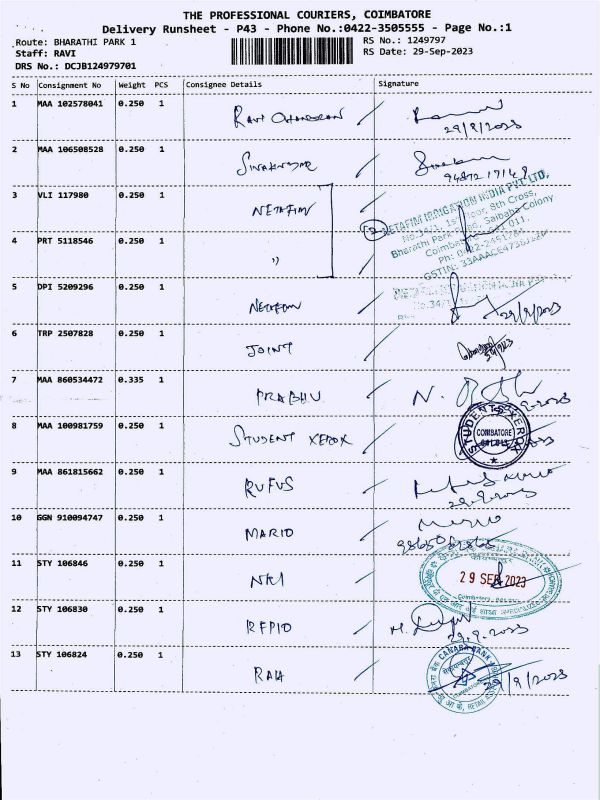 THE PROFESSIONAL COURIERS, COIMBATORE
Delivery Runsheet - P43 - Phone No.:0422-3505555 - Page No.:1
Route: BHARATHI PARK 1
Staff: RAVI
DRS No.: DCJB124979701
RS No.: 1249797
RS Date: 29-Sep-2023
S No Consignment No Weight PCS Consignee Details Signature
1 MAA 102578041 0.250 1 RAVI CHANDRAN
29/9/2023
2 MAA 106508528 0.250 1
3 VLI 117980 0.250 1 NETAFIM
NETAFIM IRRIGATION INDIA PVT. LTD.
No.34/1, 1st Floor, 8th Cross,
Bharathi Park Road, Saibaba Colony
4 PRT 5118546 0.250 1 "
5 DPI 5209296 0.250 1 NETAFIM
29/9/2023
6 TRP 2507828 0.250 1 JOINT
7 MAA 860534472 0.335 1 PRABHU N.
8 MAA 100981759 0.250 1 STUDENT XEROX
STUDENTS XEROX
COIMBATORE
9 MAA 861815662 0.250 1 RUFUS
29.9.2023
10 GGN 910094747 0.250 1 MARIO
11 STY 106846 0.250 1
29 SEP 2023
12 STY 106830 0.250 1
29.9.2023
13 STY 106824 0.250 1
CANARA BANK
29/9/2023